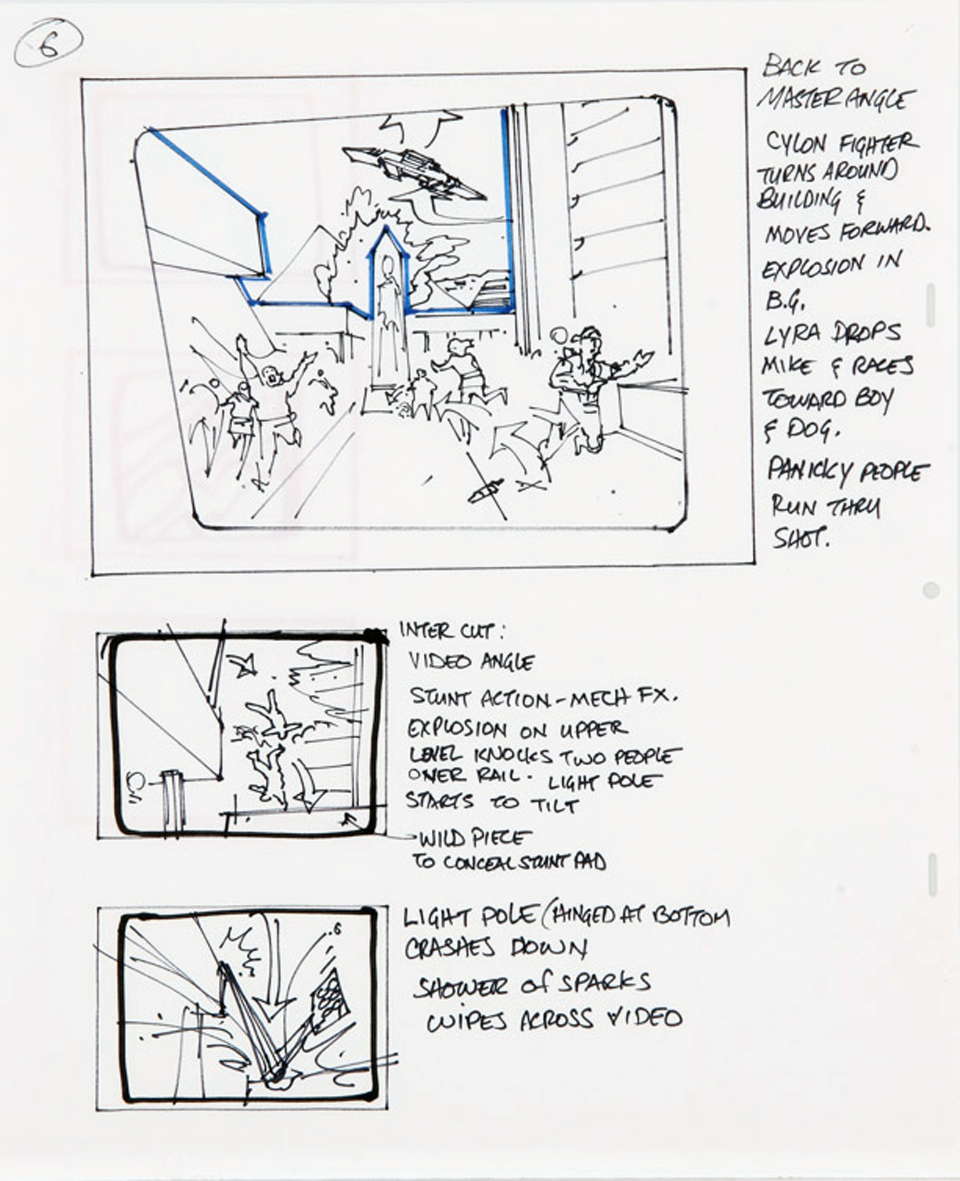 6
BACK TO
MASTER ANGLE
CYLON FIGHTER
TURNS AROUND
BUILDING &
MOVES FORWARD.
EXPLOSION IN
B.G.
LYRA DROPS
MIKE & RACES
TOWARD BOY
& DOG.
PANICKY PEOPLE
RUN THRU
SHOT.
INTER CUT:
VIDEO ANGLE
STUNT ACTION - MECH FX.
EXPLOSION ON UPPER
LEVEL KNOCKS TWO PEOPLE
OVER RAIL. LIGHT POLE
STARTS TO TILT
WILD PIECE
TO CONCEAL STUNT PAD
LIGHT POLE (HINGED AT BOTTOM
CRASHES DOWN
SHOWER OF SPARKS
WIPES ACROSS VIDEO